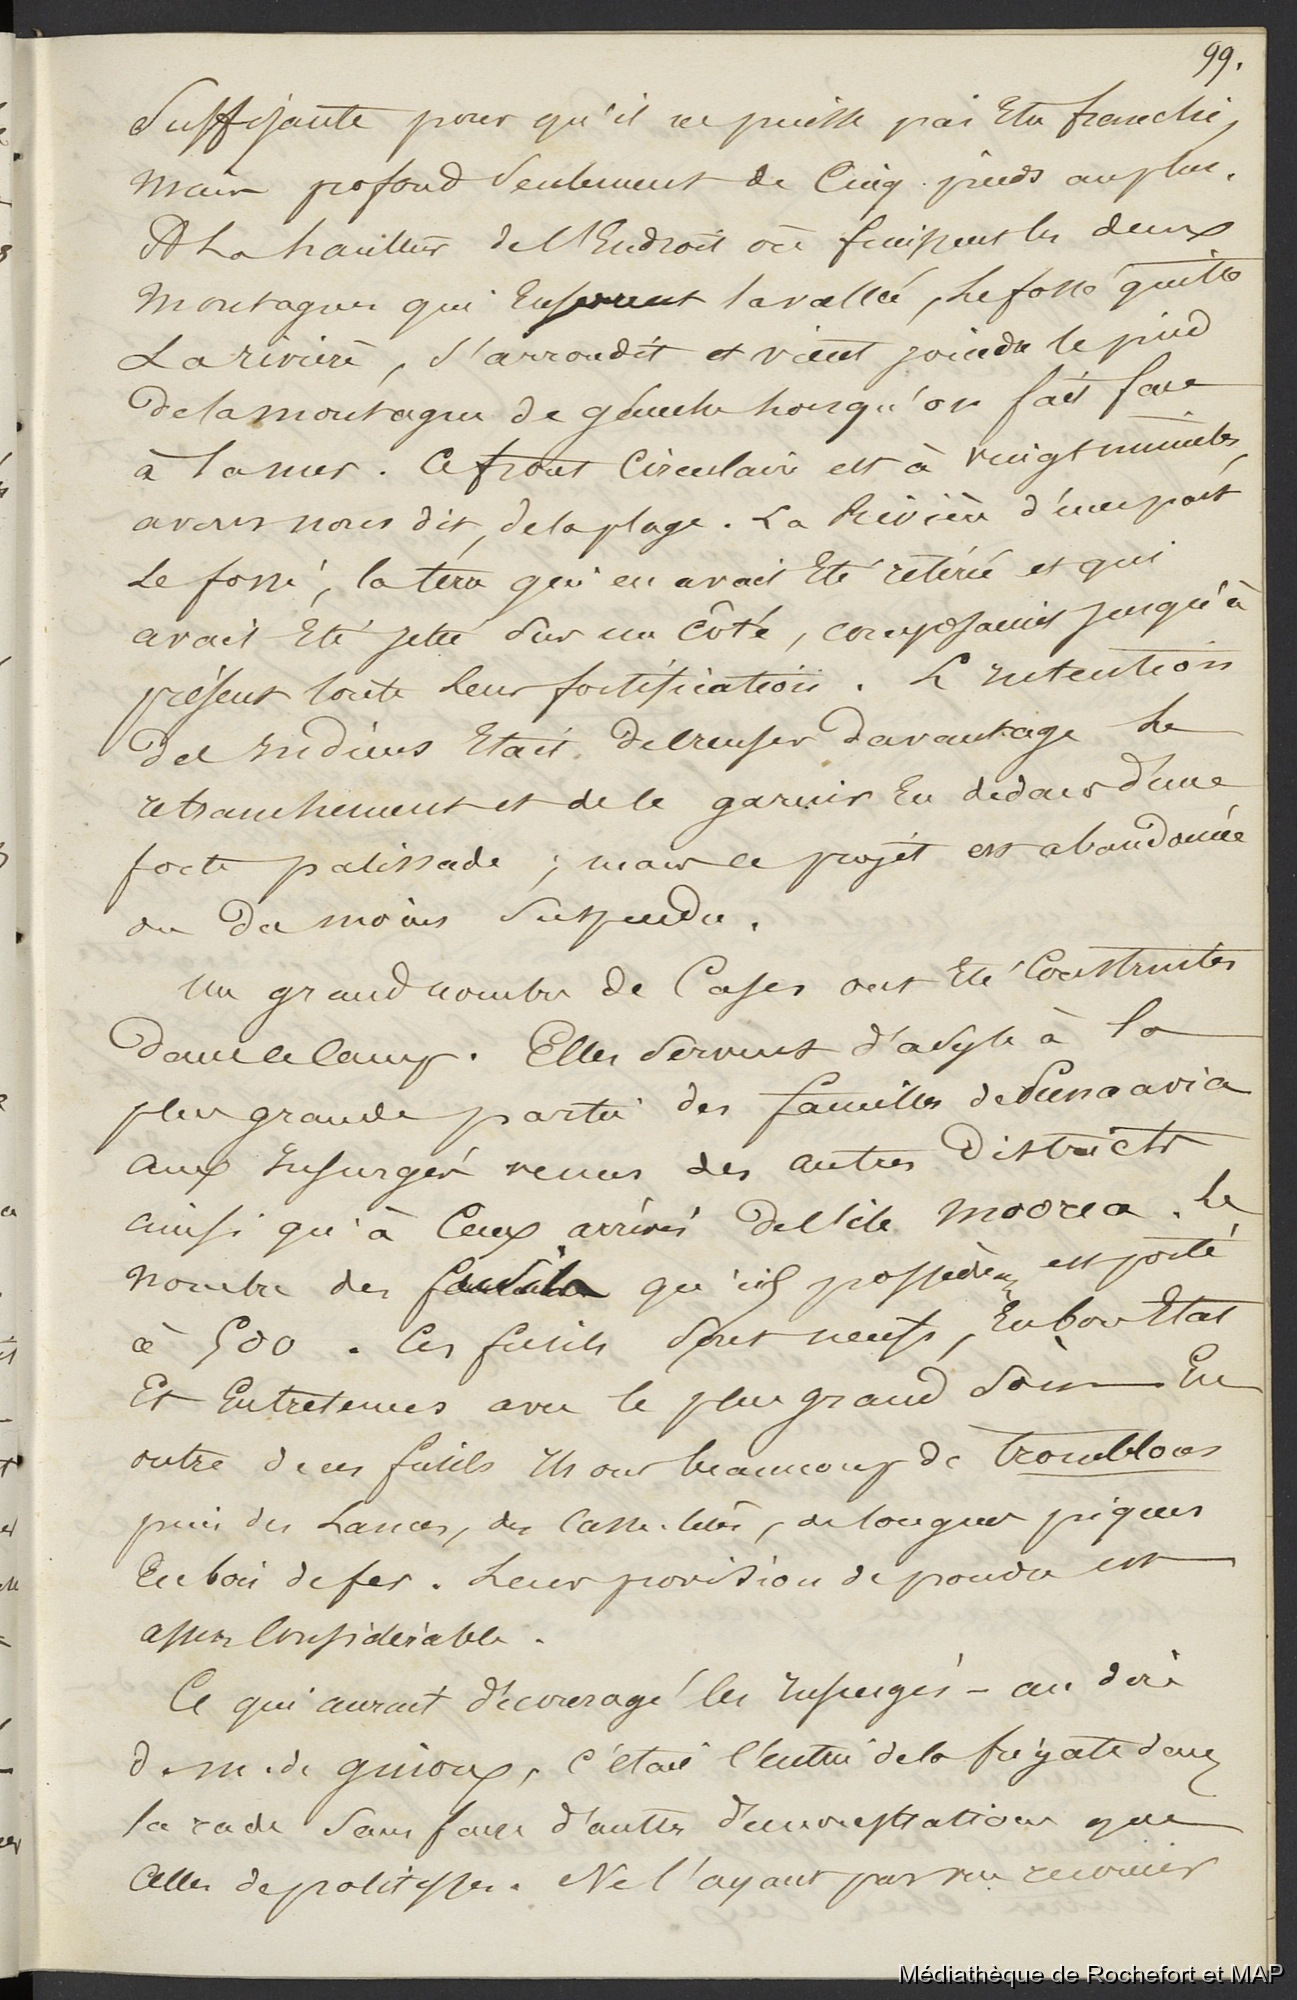 99.
Suffisante pour qu'il ne puisse pas Etre franchi,
mais profond Seulement de Cinq pieds au plus.
A La hauteur de l'Endroit où finissent les deux
montagnes qui Enserrent la vallée, Le fossé quitte
La rivière, S'arrondit et vient joindre le pied
De la montagne de gauche lorsqu'on fait face
à la mer. Ce front Circulaire est à vingt minutes,
avons nous dit, de la plage. La Rivière d'une part
Le fossé, la terre qui en avait Eté retirée et qui
avait Eté jetée Sur un côté, composaient jusqu'à
présent toute leur fortification. L'Intention
Des Indiens Etait De creuser Davantage Le
retranchement et de le garnir En dedans d'une
forte palissade ; mais ce projet est abandonnée
ou Du moins Suspendu.
Un grand nombre de Cases ont Eté Construites
Dans le Camp. Elles Servent d'asyle à la
plus grande partie des familles de Punaavia
aux Insurgés venus des autres Districts
ainsi qu'à Ceux arrivés De l'ile Moorea. Le
nombre des fusils qu'ils possèdent est porté
à 500. Ces fusils Sont neufs, En bon Etat
Et Entretenus avec le plus grand Soin En
outre de ces fusils Ils ont beaucoup de tromblons
puis des Lances, des Casse-têtes, de longues piques
En bois de fer. Leur provision de poudre est
assez Considérable.
Ce qui aurait découragé les Insurgés - au dire
de m. de giroux, c'était l'entrée de la frégate dans
la rade Sans faire d'autres démonstrations que
Celles de politesses. Ne l'ayant pas vu
Médiathèque de Rochefort et MAP